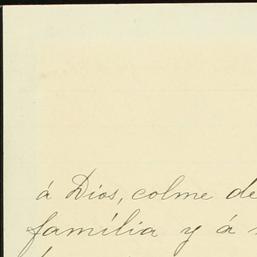 á Dios, colme de
familia y á